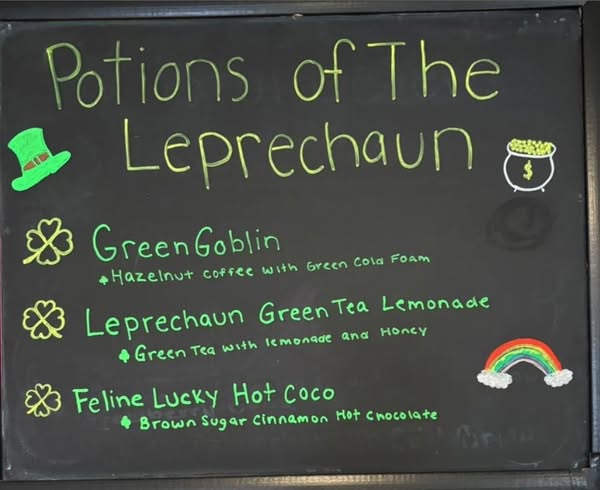 Potions of The
Leprechaun
$
Green Goblin
Hazelnut coffee with Green Cold Foam
Leprechaun Green Tea Lemonade
Green Tea with lemonade and Honey
Feline Lucky Hot Coco
Brown Sugar Cinnamon Hot Chocolate